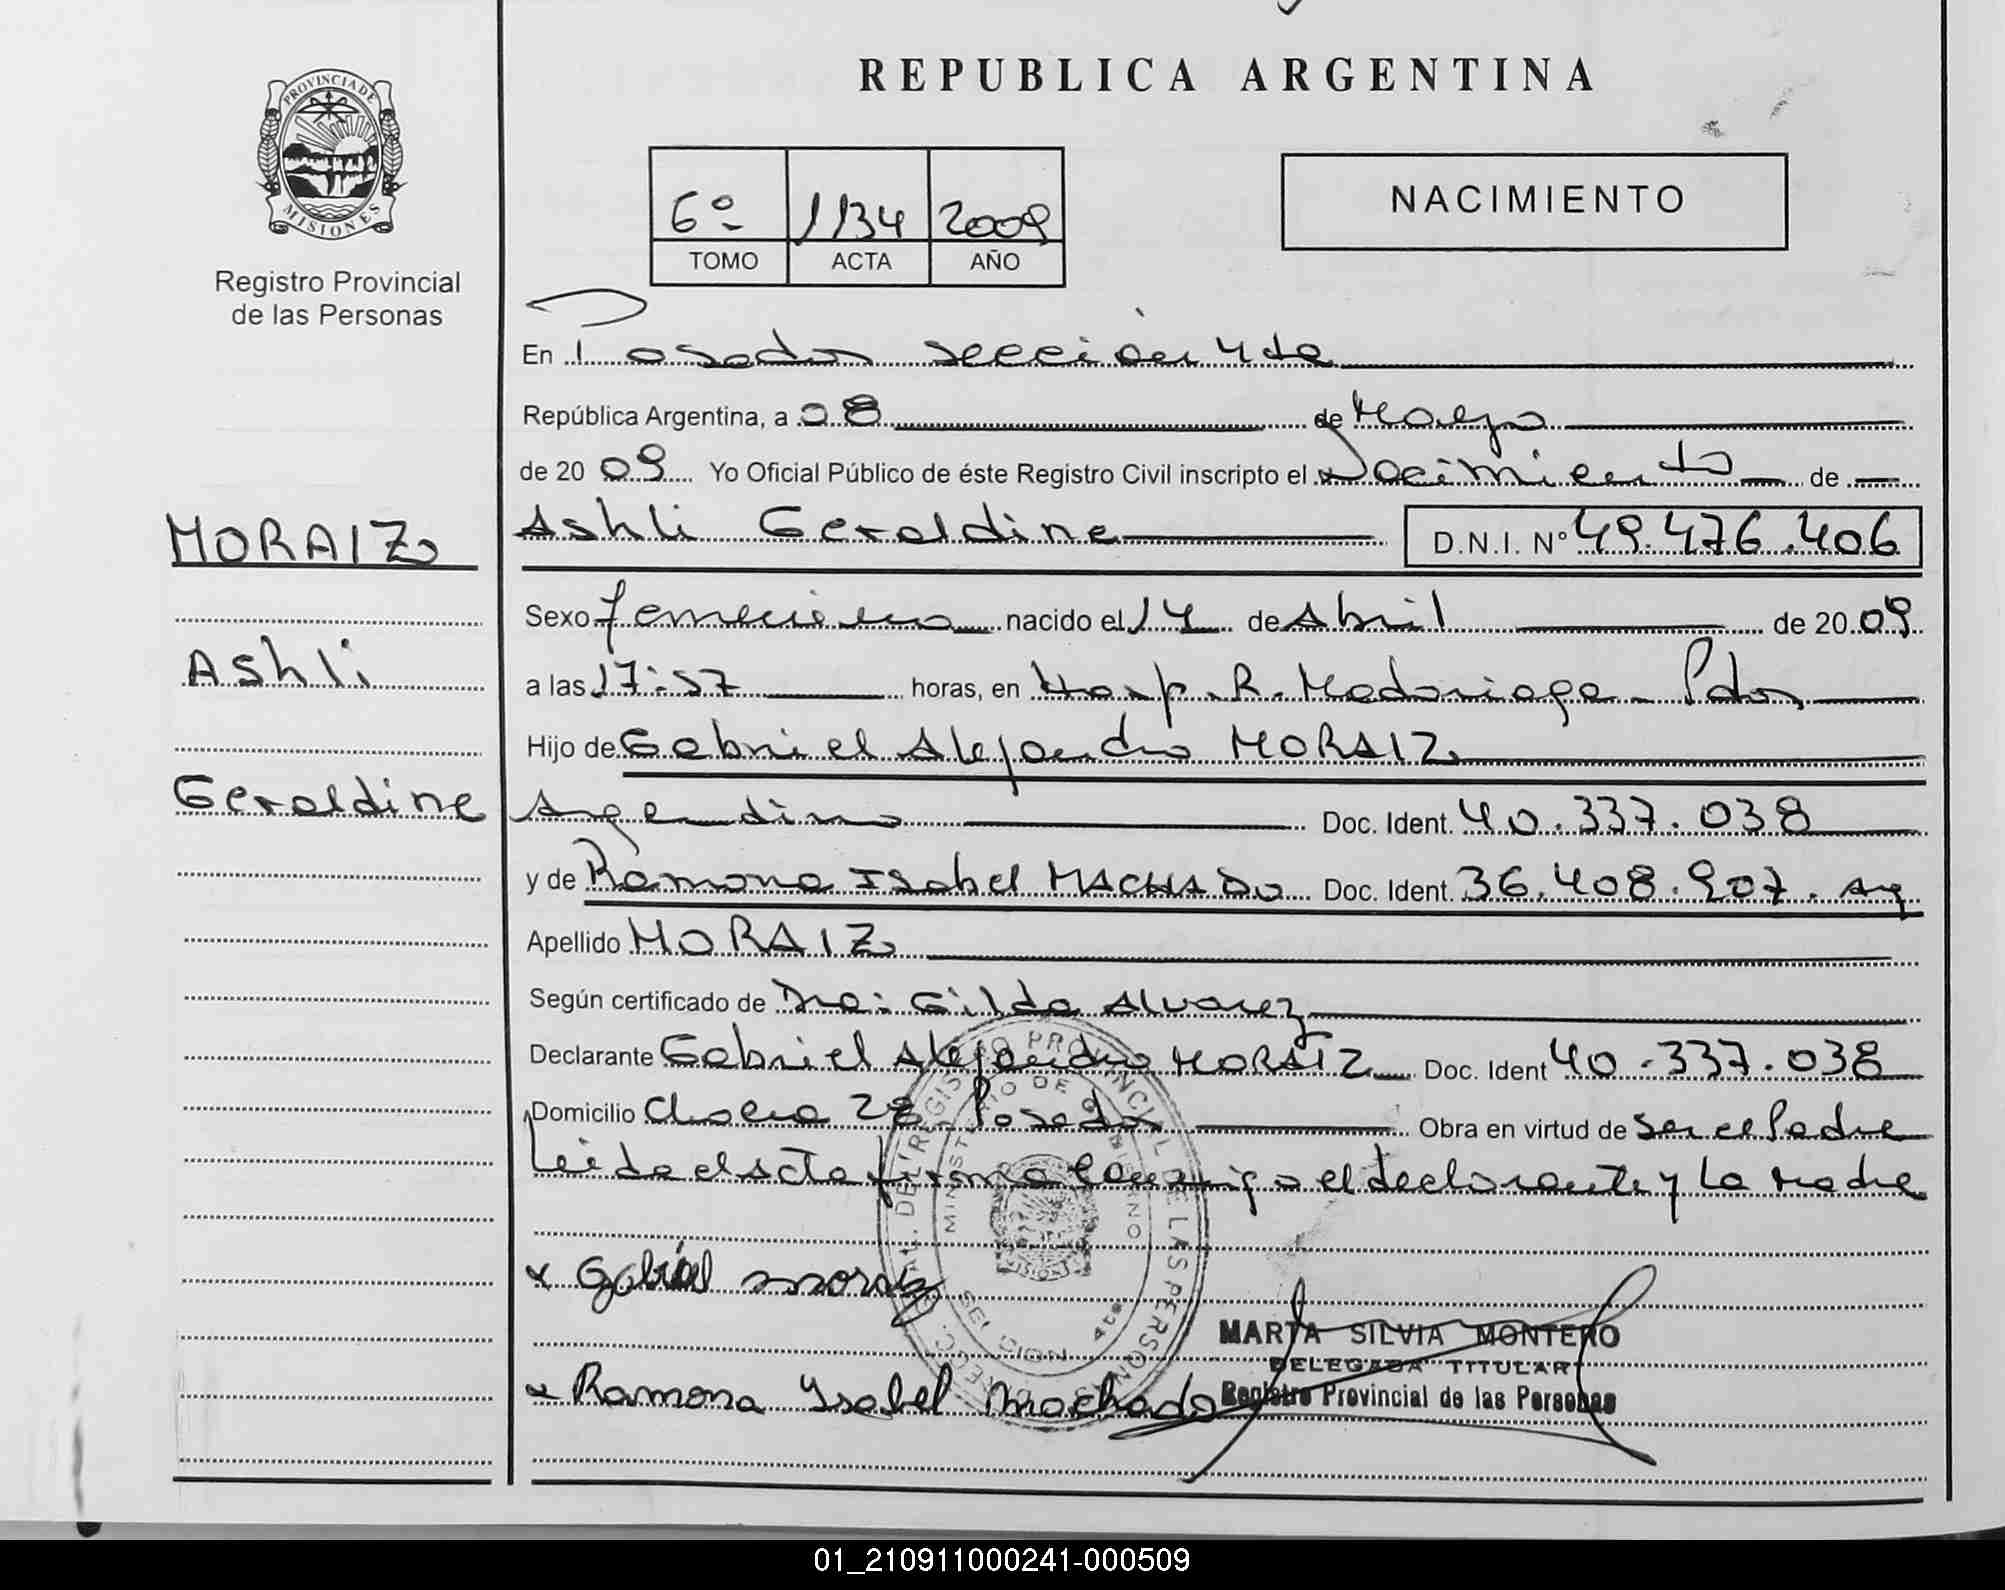 REPUBLICA ARGENTINA
PROVINCIA DE
MISIONES
Registro Provincial
de las Personas
6º 1134 2009
TOMO ACTA AÑO
NACIMIENTO
En Posadas sección 4ta
República Argentina, a 08 de Mayo
de 2009 Yo Oficial Público de éste Registro Civil inscripto el Nacimiento de
MORAIZ
Ashli
Geraldine
Ashli Geraldine D.N.I. Nº 49.476.406
Sexo femenino nacido el 14 de Abril de 2009
a las 17:57 horas, en Hosp. R. Madariaga - Pdas
Hijo de Gabriel Alejandro MORAIZ
Argentino Doc. Ident. 40.337.038
y de Ramona Isabel MACHADO Doc. Ident. 36.408.907. Arg
Apellido MORAIZ
Según certificado de Dra. Gilda Alvarez
Declarante Gabriel Alejandro MORAIZ Doc. Ident 40.337.038
Domicilio Chacra 28 Posadas Obra en virtud de ser el Padre
Leida el acta firma conmigo el declarante y La Madre
x Gabriel moraiz
x Ramona Ysabel Machado
MARTA SILVIA MONTERO
DELEGADA TITULAR
Registro Provincial de las Personas
MINISTERIO DE GOBIERNO
SECCION 4ta
01_210911000241-000509